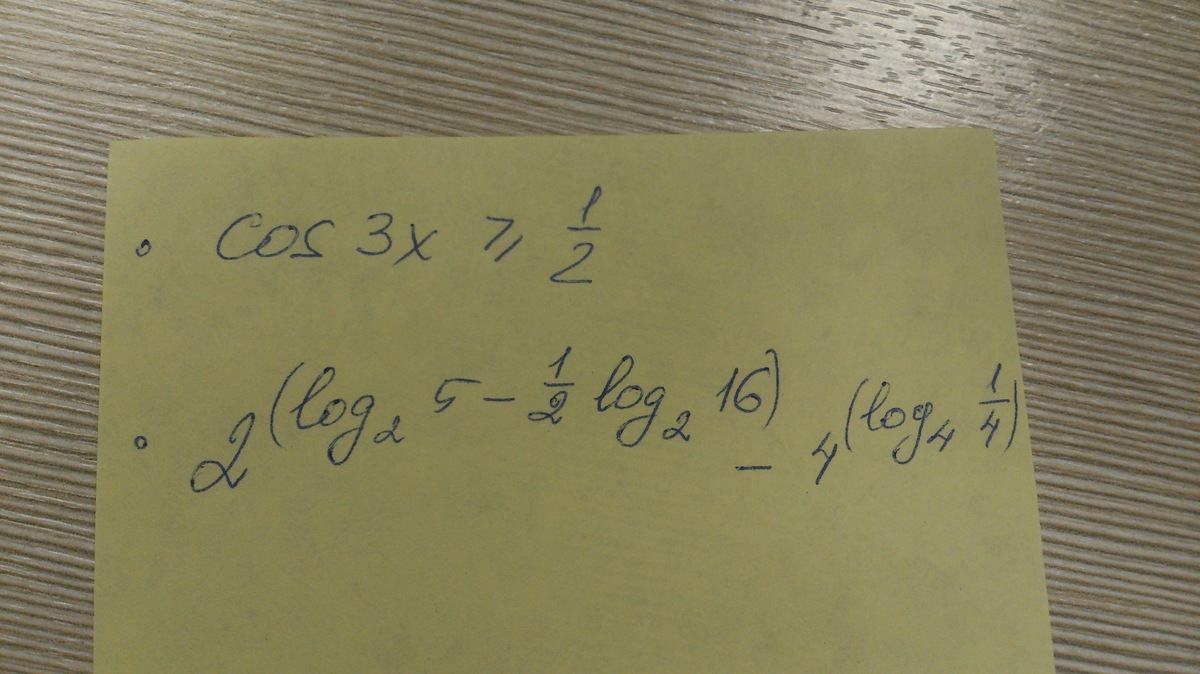 cos 3x ⩾ 1/2
2^(log₂ 5 - 1/2 log₂ 16) - 4^(log₄ 1/4)